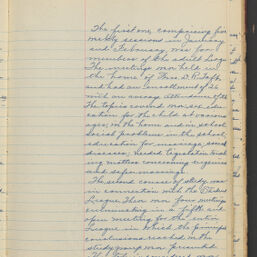 The first one, comprising five
weekly sessions in January
and February, was for
members of the adult League
The meetings were held in
the home of Mrs. D. R. Taft
and had an enrollment of 26
with an average attendance of
The topics covered were sex edu-
cation for the child at various
ages, in the home and in school,
social problems in the school,
education for marriage, social
diseases, needed legislation and
matters concerning
and
The second course of study was
in connection with the
League. There were four meetings
culminating in a fifth and
open meeting for the entire
League in which the group's
conclusions reached in the
study group were presented.